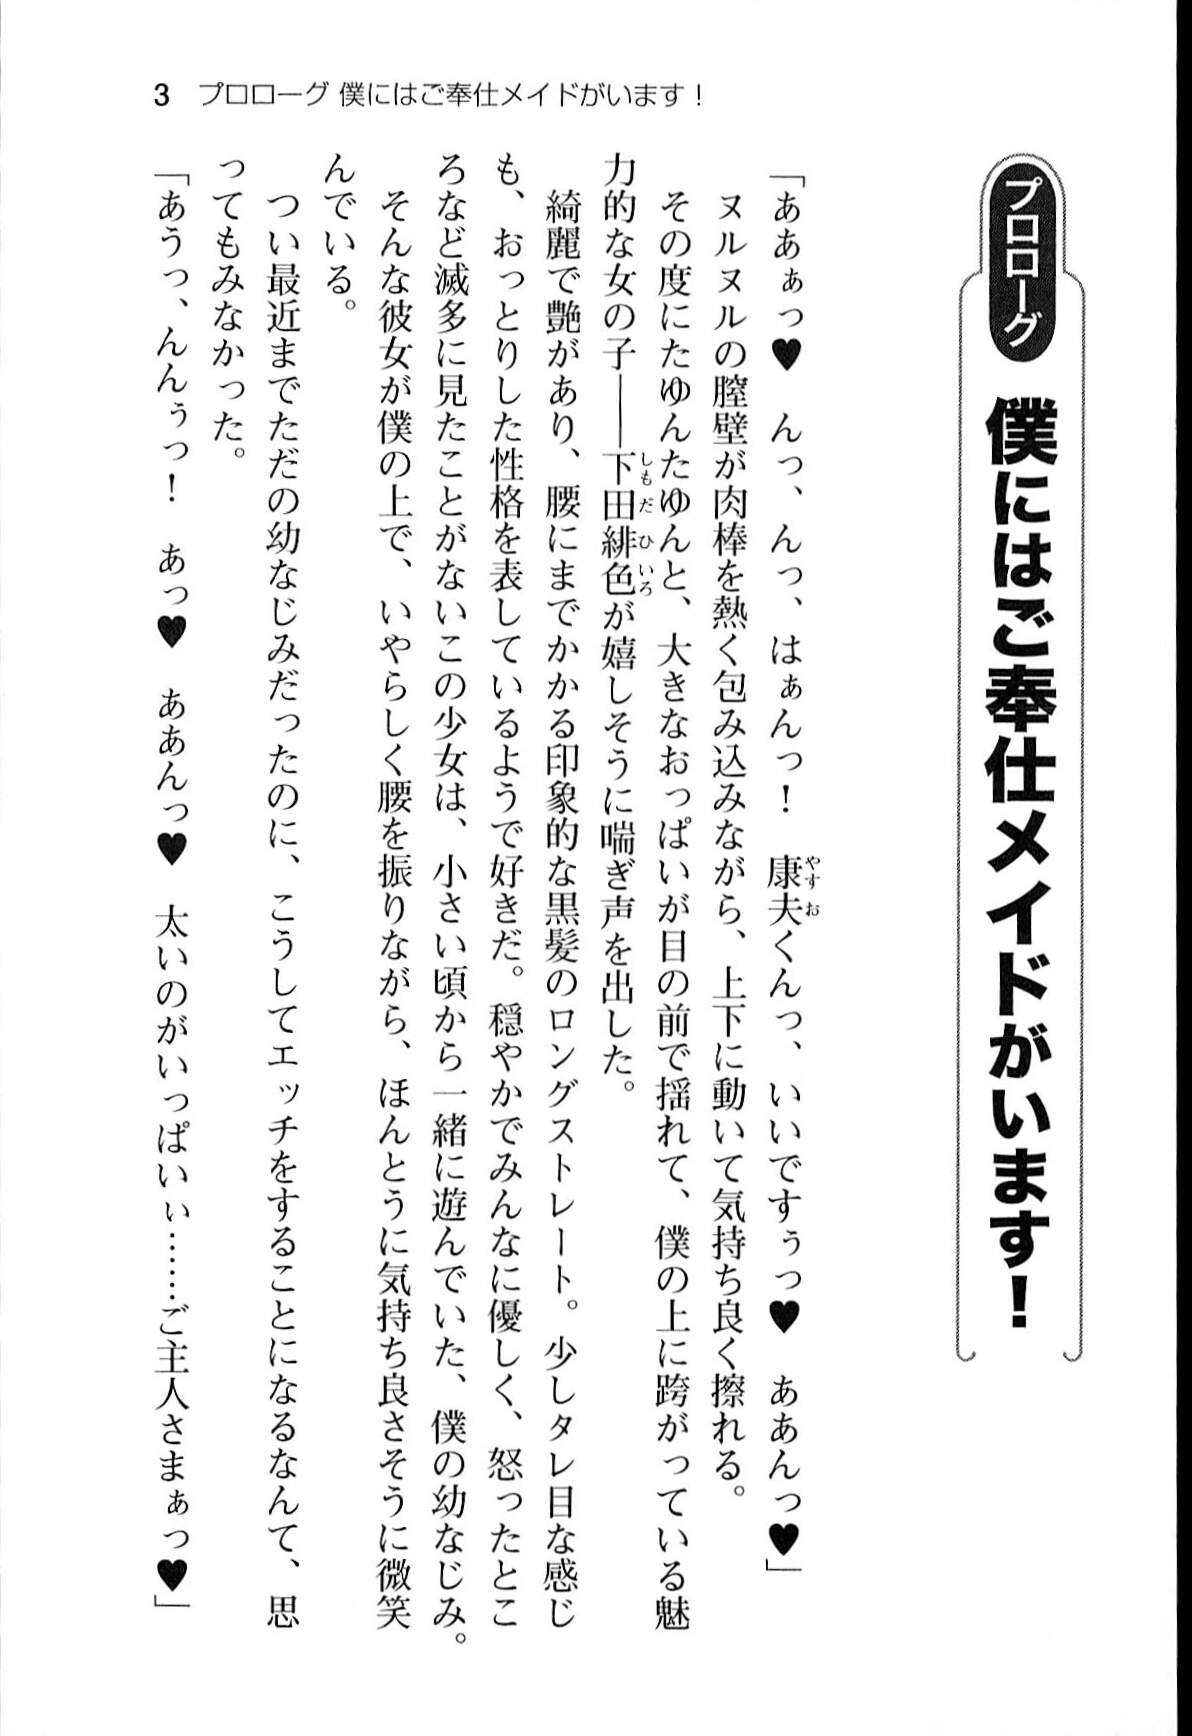 3 プロローグ 僕にはご奉仕メイドがいます！
プロローグ
僕にはご奉仕メイドがいます！
「ああぁっ♥　んっ、んっ、はぁんっ！　康夫くんっ、いいですぅっ♥　ああんっ♥」
ヌルヌルの膣壁が肉棒を熱く包み込みながら、上下に動いて気持ち良く擦れる。
その度にたゆんたゆんと、大きなおっぱいが目の前で揺れて、僕の上に跨がっている魅
力的な女の子――下田緋色が嬉しそうに喘ぎ声を出した。
綺麗で艶があり、腰にまでかかる印象的な黒髪のロングストレート。少しタレ目な感じ
も、おっとりした性格を表しているようで好きだ。穏やかでみんなに優しく、怒ったとこ
ろなど滅多に見たことがないこの少女は、小さい頃から一緒に遊んでいた、僕の幼なじみ。
そんな彼女が僕の上で、いやらしく腰を振りながら、ほんとうに気持ち良さそうに微笑
んでいる。
つい最近までただの幼なじみだったのに、こうしてエッチをすることになるなんて、思
ってもみなかった。
「あうっ、んんぅっ！　あっ♥　ああんっ♥　太いのがいっぱいぃ……ご主人さまぁっ♥」